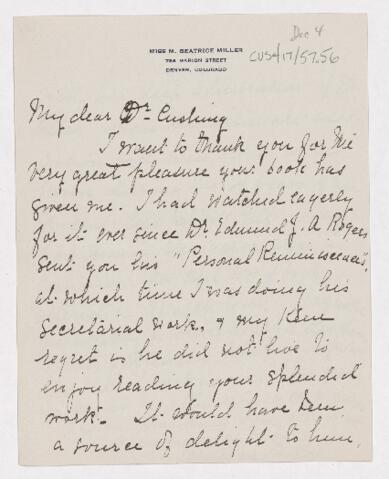 Dec 4
CUS4/17/57.56
MISS M. BEATRICE MILLER
MARION STREET
DENVER, COLORADO
My dear Dr. Cushing
I want to thank you for the
very great pleasure your book has
given me. I had watched eagerly
for it ever since Dr. Edmund J. A. Rogers
sent you his "Personal Reminiscences",
at which time I was doing his
secretarial work, & my keen
regret is he did not live to
enjoy reading your splendid
work. It would have been
a source of delight to him,